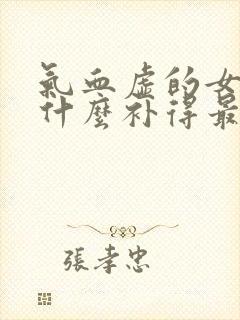 氣血虛的女
什麼补得最
張孝忠